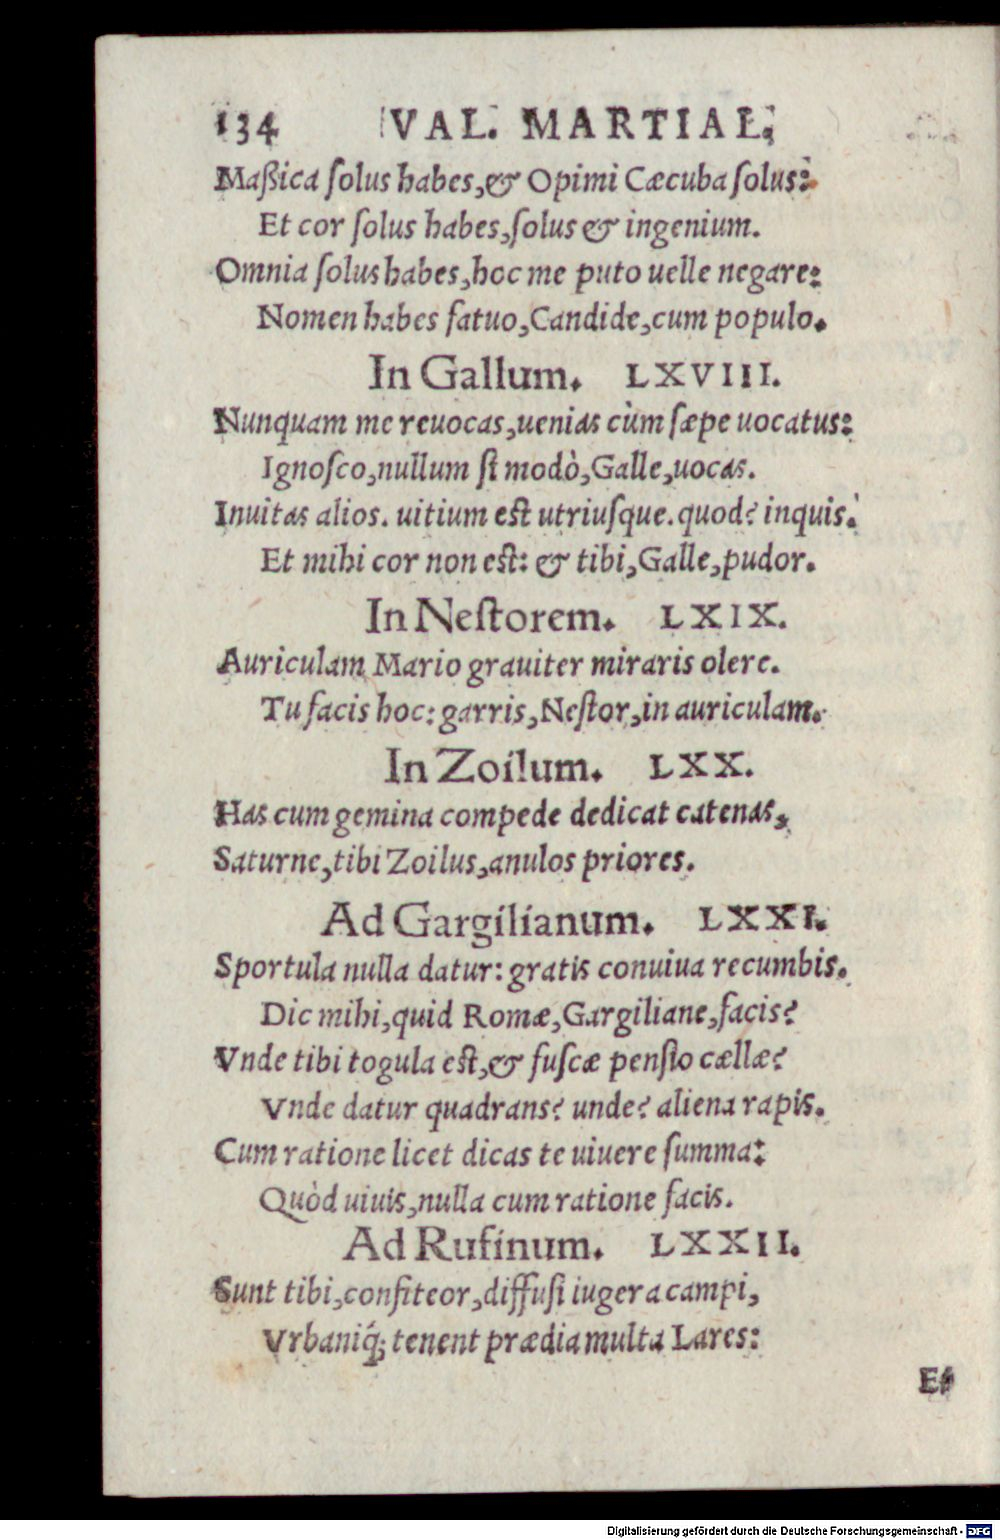 134 VAL. MARTIAL.
Maßica ſolus habes, & Opimi Cæcuba ſolus:
Et cor ſolus habes, ſolus & ingenium.
Omnia ſolus habes, hoc me puto uelle negare:
Nomen habes fatuo, Candide, cum populo.
In Gallum. LXVIII.
Nunquam me reuocas, uenias cùm ſæpe uocatus:
Ignoſco, nullum ſi modò, Galle, uocas.
Inuitas alios. uitium est utriuſque. quod? inquis.
Et mihi cor non est: & tibi, Galle, pudor.
In Neſtorem. LXIX.
Auriculam Mario grauiter miraris olere.
Tu facis hoc: garris, Neſtor, in auriculam.
In Zoilum. LXX.
Has cum gemina compede dedicat catenas,
Saturne, tibi Zoilus, anulos priores.
Ad Gargilianum. LXXI.
Sportula nulla datur: gratis conuiua recumbis.
Dic mihi, quid Romæ, Gargiliane, facis?
Vnde tibi togula est, & fuſcæ penſio cællæ?
Vnde datur quadrans? unde? aliena rapis.
Cum ratione licet dicas te uiuere ſumma:
Quòd uiuis, nulla cum ratione facis.
Ad Rufinum. LXXII.
Sunt tibi, confiteor, diffuſi iugera campi,
Vrbaniq́; tenent prædia multa Lares:
Et
Digitalisierung gefördert durch die Deutsche Forschungsgemeinschaft - DFG